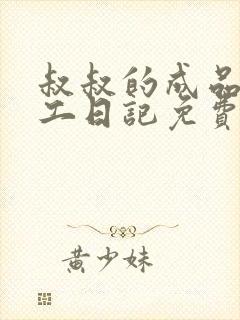 叔叔的成品
工日記免費
黃少妹